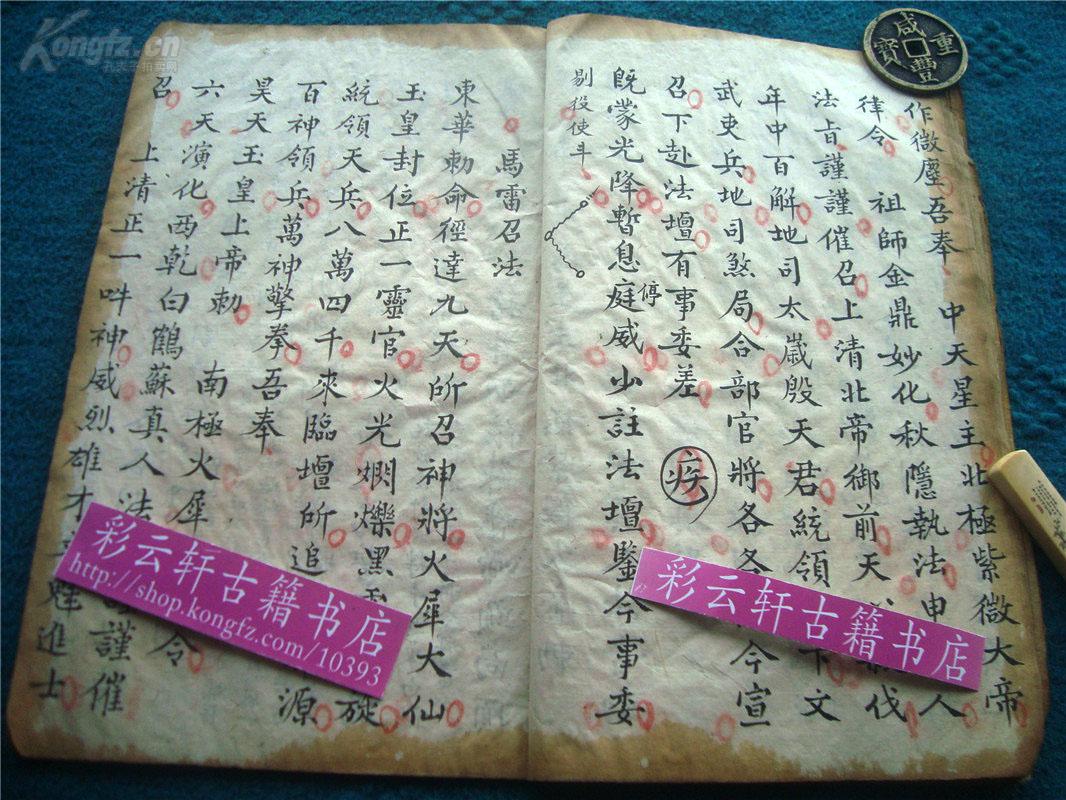 作微塵吾奉　中天星主北極紫微大帝
律令　祖師金鼎妙化秋隱執法申人
法旨謹謹催召上清北帝御前天伐
年中百解地司太嵗殷天君統領下文
武吏兵地司煞局合部官將各各今宣
召下赴法壇有事委差　疾
既蒙光降暫息庭威少註法壇鑒今事委
停
剔投使斗
馬雷召法
東華勅命徑達九天所召神將火犀大仙
玉皇封位正一靈官火光燗爍黑
統領天兵八萬四千來臨壇所追
百神領兵萬神擎拳吾奉源
昊天玉皇上帝勅　南極火犀令
六天演化西乾白鶴蘇真人法
召　上清正一吽神威烈雄才進士
謹催
咸豐重寶
彩云轩古籍书店
http://shop.kongfz.com/10393
彩云轩古籍书店
Kongfz.cn
孔夫子拍卖网